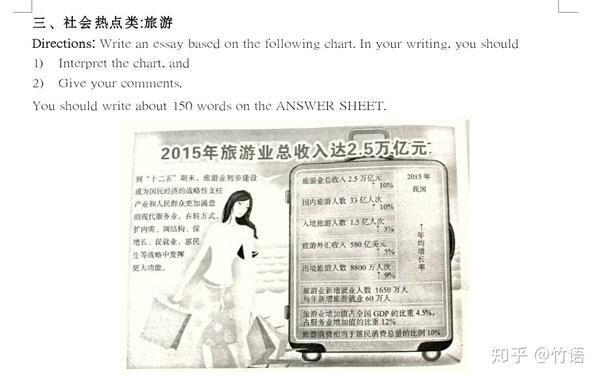 三、社会热点类:旅游
Directions: Write an essay based on the following chart. In your writing, you should
1) Interpret the chart, and
2) Give your comments.
You should write about 150 words on the ANSWER SHEET.
2015年旅游业总收入达2.5万亿元
到“十二五”期末，旅游业初步建设
成为国民经济的战略性支柱
产业和人民群众更加满意
的现代服务业，在转方式、
扩内需、调结构、保
增长、促就业、惠民
生等战略中发挥
更大功能。
2015年
我国
旅游业总收入 2.5 万亿元
↑10%
国内旅游人数 33亿人次
↑10%
入境旅游人数 1.5亿人次
↑3%
旅游外汇收入 580亿美元
↑5%
出境旅游人数 8800万人次
↑9%
↑年均增长率
旅游业新增就业人数 1650 万人
每年新增旅游就业 60 万人
旅游业增加值占全国 GDP 的比重 4.5%，
占服务业增加值的比重 12%
旅游消费相当于居民消费总量的比例 10%
知乎 @竹语